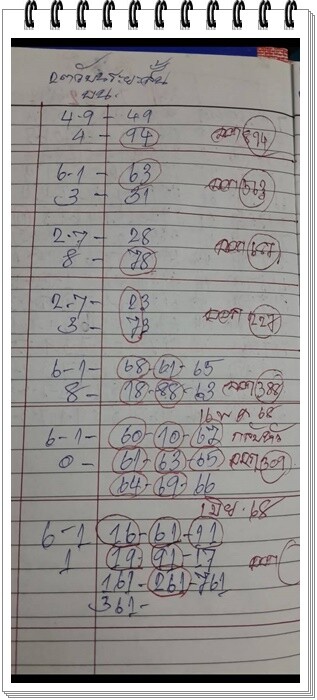 บน.
4-9- 49
4- 94 ออก 594
6-1- 63 ออก 563
3- 31
2-7- 28
8- 78 ออก
2-7- 23
3- 73 ออก 227
6-1- 68-61-65
8- 18-88-63 ออก 388
16 พ.ค 68
6-1- 60-10-67
0- 61-63-65 ออก 309
64-69-66
มิย.68
6-1 16-61-11
1 19-91-17 ออก
161-261-761
361-